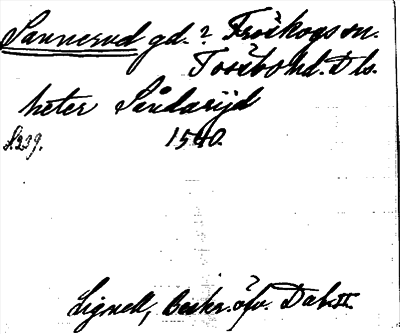 Sannerud gd. ? Fröskogs sn.
Tössbo hd. Dls.
heter Sandarijd
S. 239. 1540.
Lignell, Beskr. öfv. Dal. II.